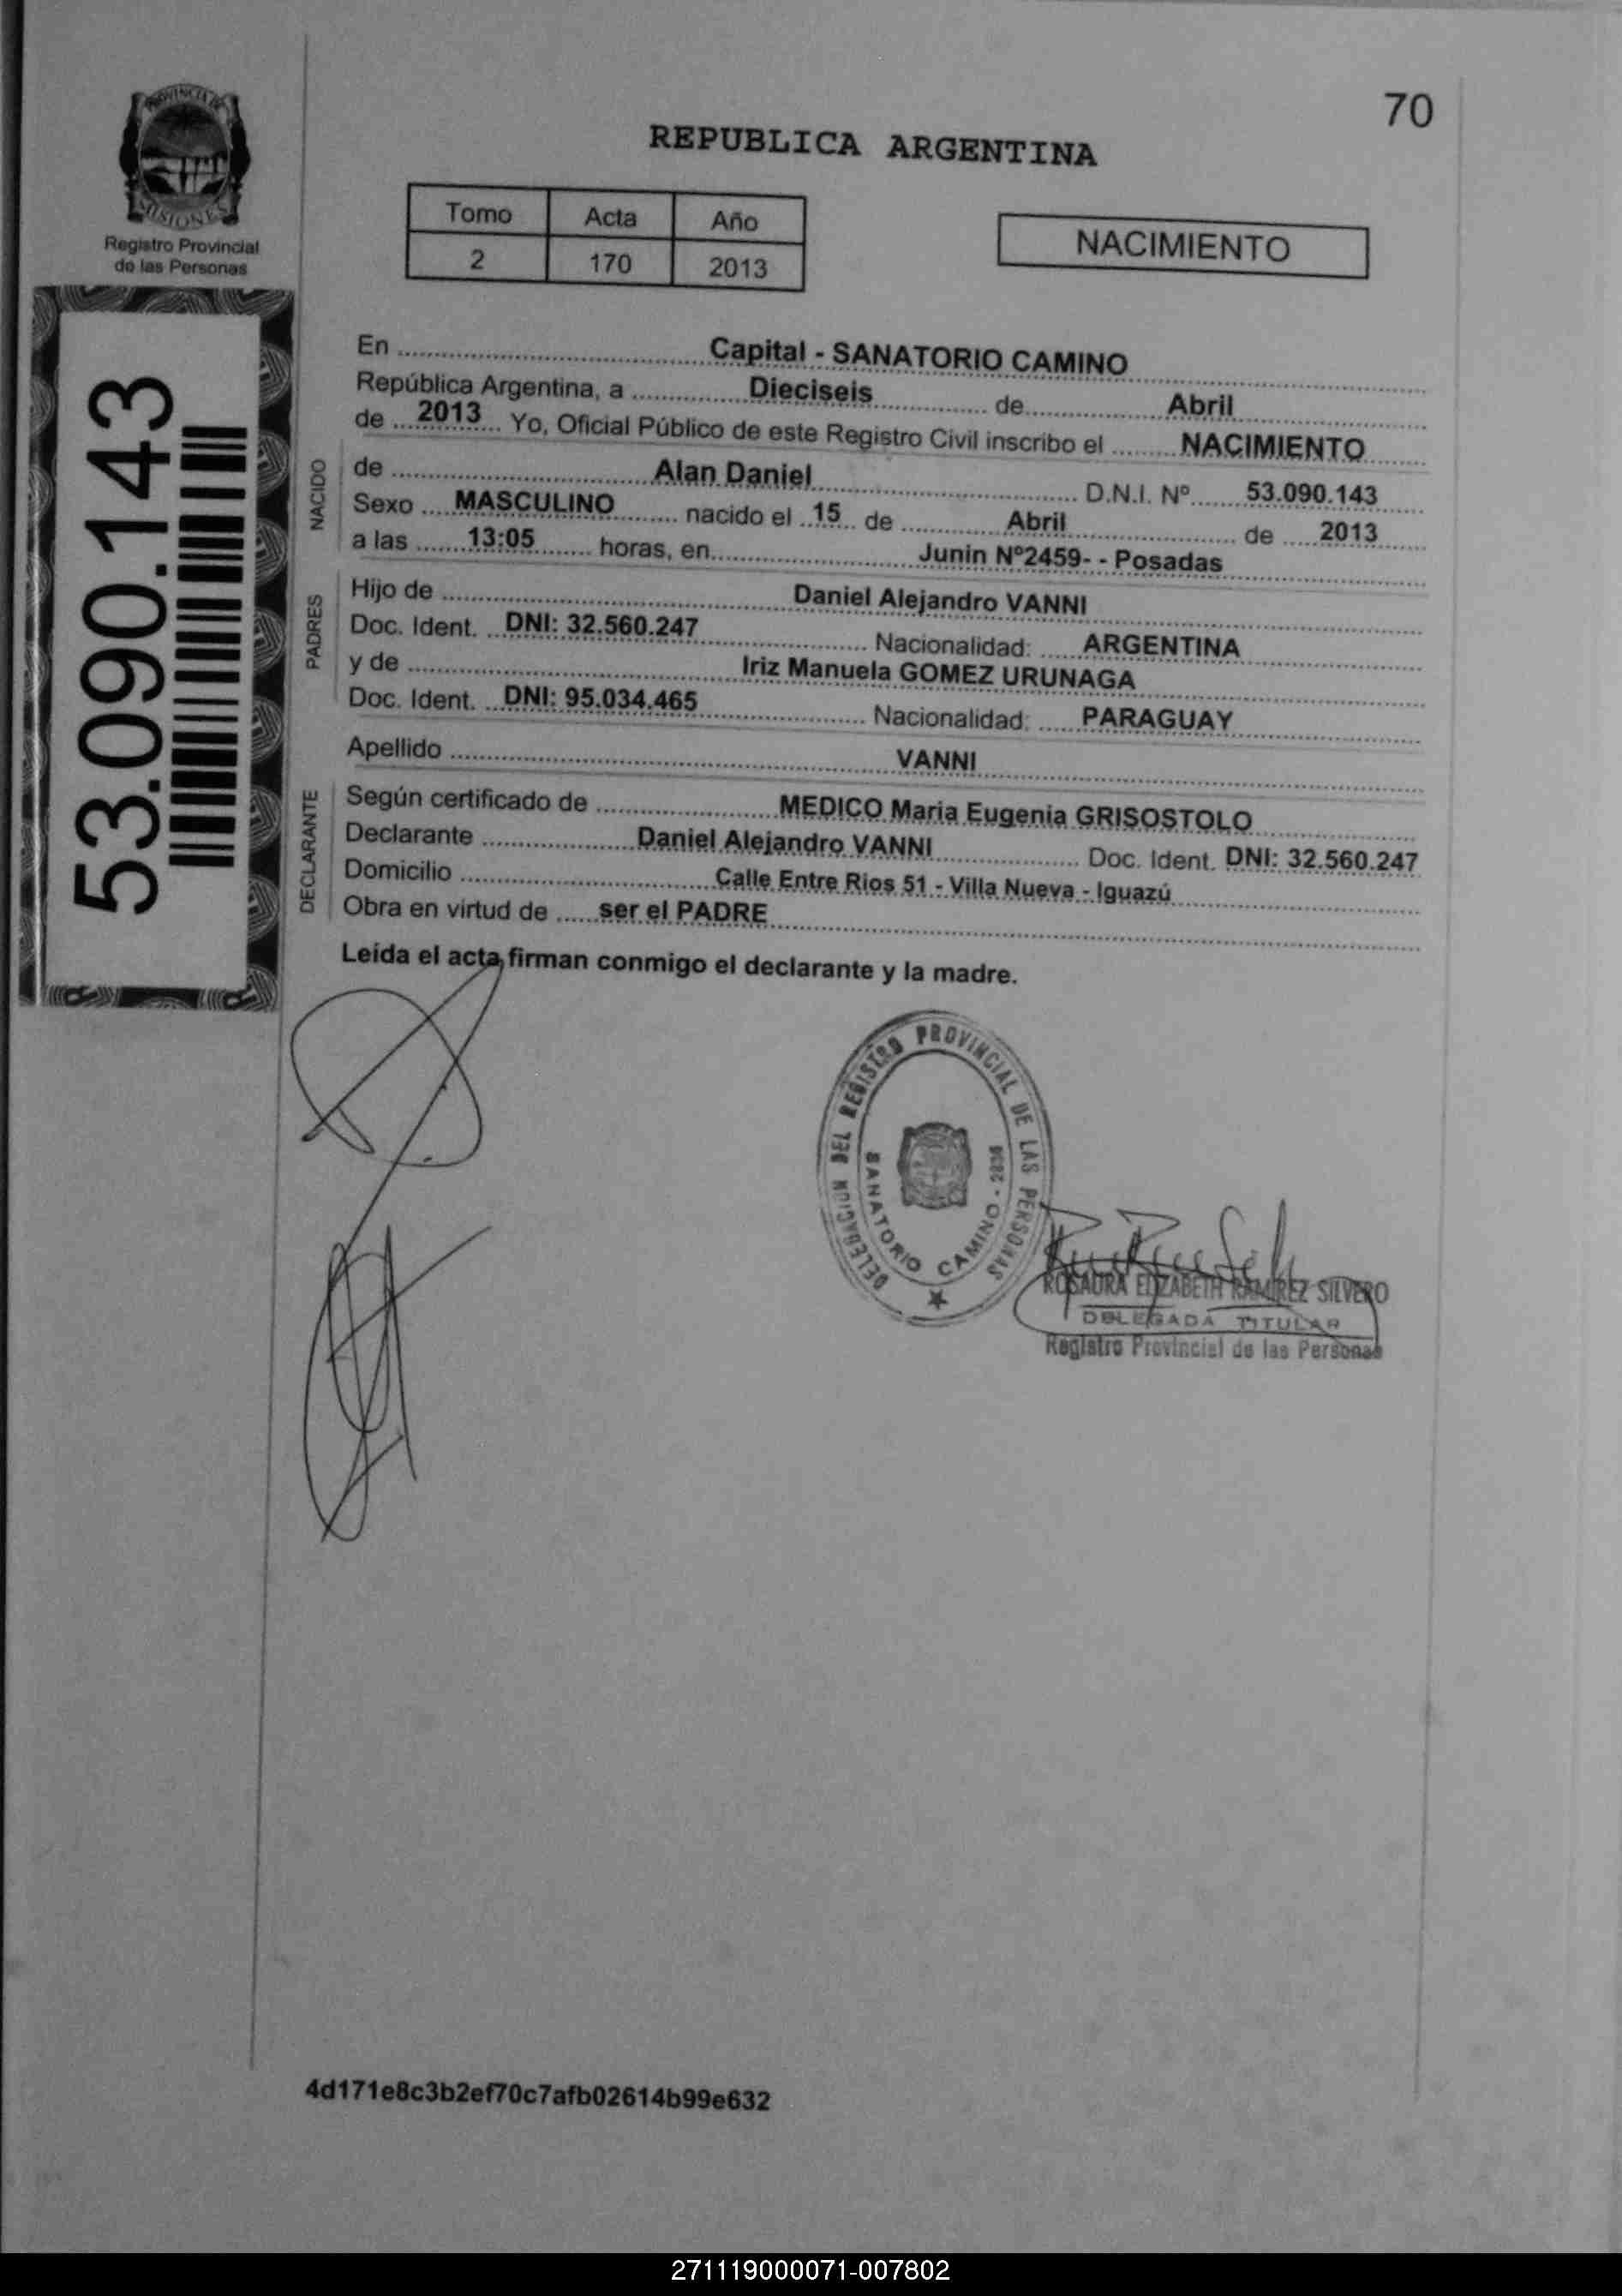 70
PROVINCIA DE
MISIONES
Registro Provincial
de las Personas
REPUBLICA ARGENTINA
Tomo Acta Año
2 170 2013
NACIMIENTO
53.090.143
En Capital - SANATORIO CAMINO
República Argentina, a Dieciseis de Abril
de 2013 Yo, Oficial Público de este Registro Civil inscribo el NACIMIENTO
NACIDO
de Alan Daniel D.N.I. Nº 53.090.143
Sexo MASCULINO nacido el 15 de Abril de 2013
a las 13:05 horas, en Junin Nº2459- - Posadas
PADRES
Hijo de Daniel Alejandro VANNI
Doc. Ident. DNI: 32.560.247 Nacionalidad: ARGENTINA
y de Iriz Manuela GOMEZ URUNAGA
Doc. Ident. DNI: 95.034.465 Nacionalidad: PARAGUAY
Apellido VANNI
DECLARANTE
Según certificado de MEDICO Maria Eugenia GRISOSTOLO
Declarante Daniel Alejandro VANNI Doc. Ident. DNI: 32.560.247
Domicilio Calle Entre Rios 51 - Villa Nueva - Iguazú
Obra en virtud de ser el PADRE
Leida el acta, firman conmigo el declarante y la madre.
DELEGACION DEL REGISTRO PROVINCIAL DE LAS PERSONAS
SANATORIO CAMINO -
ROSAURA ELIZABETH RAMIREZ SILVERO
DELEGADA TITULAR
Registro Provincial de las Personas
4d171e8c3b2ef70c7afb02614b99e632
271119000071-007802